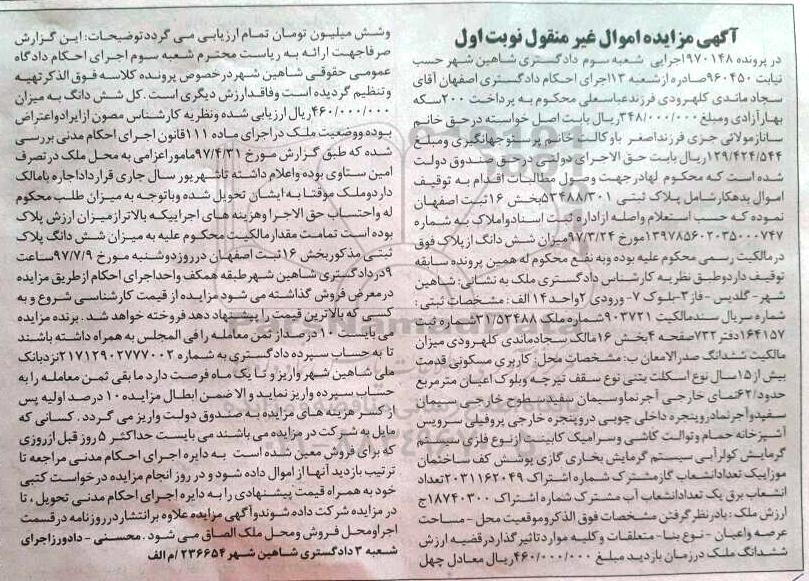 آگهی مزایده اموال غیر منقول نوبت اول
در پرونده ۹۷۰۱۴۸ اجرایی شعبه سوم دادگستری شاهین شهر حسب
نیابت ۹۶۰۴۵۰ صادره از شعبه ۱۳ اجرای احکام دادگستری اصفهان آقای
سجاد ماندی کلهرودی فرزند عباسعلی محکوم به پرداخت ۲۰۰ سکه
بهار آزادی ومبلغ ۳۴۸/۰۰۰/۰۰۰ ریال بابت اصل خواسته در حق خانم
ساناز مولائی جزی فرزند اصغر باوکالت خانم پرستو جهانگیری ومبلغ
۱۲۹/۴۲۴/۵۴۴ ریال بابت حق الاجرای دولتی در حق صندوق دولت
شده است که محکوم لها در جهت وصول مطالبات اقدام به توقیف
اموال بدهکار شامل پلاک ثبتی ۵۳۴۸۸/۳۰۱ بخش ۱۶ ثبت اصفهان
نموده که حسب استعلام واصله از اداره ثبت اسناد واملاک به شماره
۱۳۹۷۸۵۶۰۲۰۳۵۰۰۰۷۴۷ مورخ ۹۷/۳/۲۴ میزان شش دانگ از پلاک فوق
در مالکیت رسمی محکوم علیه بوده وبه نفع محکوم له همین پرونده سابقه
توقیف دارد وطبق نظریه کارشناس دادگستری ملک به نشانی: شاهین
شهر - گلدیس - فاز ۳ - بلوک ۷ - ورودی ۲ واحد ۱۴ الف: مشخصات ثبتی:
شماره سریال سند مالکیت ۹۰۳۷۲۱ شماره ملک ۳۱/۵۳۴۸۸ شماره ثبت
۱۶۴۱۵۷ دفتر ۷۳۲ صفحه ۴ بخش ۱۶ مالک سجاد ماندی کلهرودی میزان
مالکیت ششدانگ صدر الامعان ب: مشخصات محل: کاربری مسکونی قدمت
بیش از ۱۵ سال نوع اسکلت بتنی نوع سقف تیرچه وبلوک اعیان متر مربع
حدود ۶۲ نمای خارجی آجر نما وسیمان سفید سطوح خارجی سیمان
سفید و آجر نما در و پنجره داخلی چوبی در و پنجره خارجی پروفیلی سرویس
آشپزخانه حمام و توالت کاشی و سرامیک کابینت از نوع فلزی سیستم
گرمایش کولر آبی سیستم گرمایش بخاری گازی پوشش کف ساختمان
موزاییک تعداد انشعاب گاز مشترک شماره اشتراک ۲۰۳۱۱۶۲۰۴۹ تعداد
انشعاب برق یک تعداد انشعاب آب مشترک شماره اشتراک ۱۸۷۴۰۳۰۰ ج
ارزش ملک: با در نظر گرفتن مشخصات فوق الذکر و موقعیت محل - مساحت
عرصه و اعیان - نوع بنا - متعلقات و کلیه موارد تاثیر گذار در قضیه ارزش
ششدانگ ملک در زمان بازدید مبلغ ۴۶۰/۰۰۰/۰۰۰ ریال معادل چهل
وشش میلیون تومان تمام ارزیابی می گردد توضیحات: این گزارش
صرفا جهت ارائه به ریاست محترم شعبه سوم اجرای احکام دادگاه
عمومی حقوقی شاهین شهر در خصوص پرونده کلاسه فوق الذکر تهیه
و تنظیم گردیده است وفاقد ارزش دیگری است. کل شش دانگ به میزان
۴۶۰/۰۰۰/۰۰۰ ریال ارزیابی شده ونظریه کارشناس مصون از ایراد واعتراض
بوده ووضعیت ملک در اجرای ماده ۱۱۱ قانون اجرای احکام مدنی بررسی
شده که طبق گزارش مورخ ۹۷/۴/۳۱ مامور اعزامی به محل ملک در تصرف
امین ستاوی بوده واعلام داشته تا شهریور سال جاری قرارداد اجاره با مالک
دارد وملک موقتا به ایشان تحویل شده وباتوجه به میزان طلب محکوم
له واحتساب حق الاجرا وهزینه های اجراییکه بالاتر از میزان ارزش پلاک
بوده است تمامت مقدار مالکیت محکوم علیه به میزان شش دانگ پلاک
ثبتی مذکور بخش ۱۶ ثبت اصفهان در روز دوشنبه مورخ ۹۷/۷/۹ ساعت
۹ در دادگستری شاهین شهر طبقه همکف واحد اجرای احکام از طریق مزایده
در معرض فروش گذاشته می شود مزایده از قیمت کارشناسی شروع و به
کسی که بالاترین قیمت را پیشنهاد دهد فروخته خواهد شد. برنده مزایده
می بایست ۱۰ درصد از ثمن معامله را فی المجلس به همراه داشته باشند
تا به حساب سپرده دادگستری به شماره ۲۱۷۱۲۹۰۲۷۷۷۰۰۲ نزد بانک
ملی شاهین شهر واریز و تا یک ماه فرصت دارد ما بقی ثمن معامله را به
حساب سپرده واریز نماید و الا ضمن ابطال مزایده ۱۰ درصد اولیه پس
از کسر هزینه های مزایده به صندوق دولت واریز می گردد. کسانی که
مایل به شرکت در مزایده می باشند می بایست حداکثر ۵ روز قبل از روزی
که برای فروش معین شده است به دایره اجرای احکام مدنی مراجعه تا
ترتیب بازدید آنها از اموال داده شود و در روز انجام مزایده درخواست کتبی
خود به همراه قیمت پیشنهادی را به دایره اجرای احکام مدنی تحویل، تا
در مزایده شرکت داده شوند و آگهی مزایده علاوه بر انتشار در روزنامه در قسمت
اجرا و محل فروش و محل ملک الصاق می شود. محسنی - دادورز اجرای
شعبه ۳ دادگستری شاهین شهر ۲۳۶۶۵۴/م الف